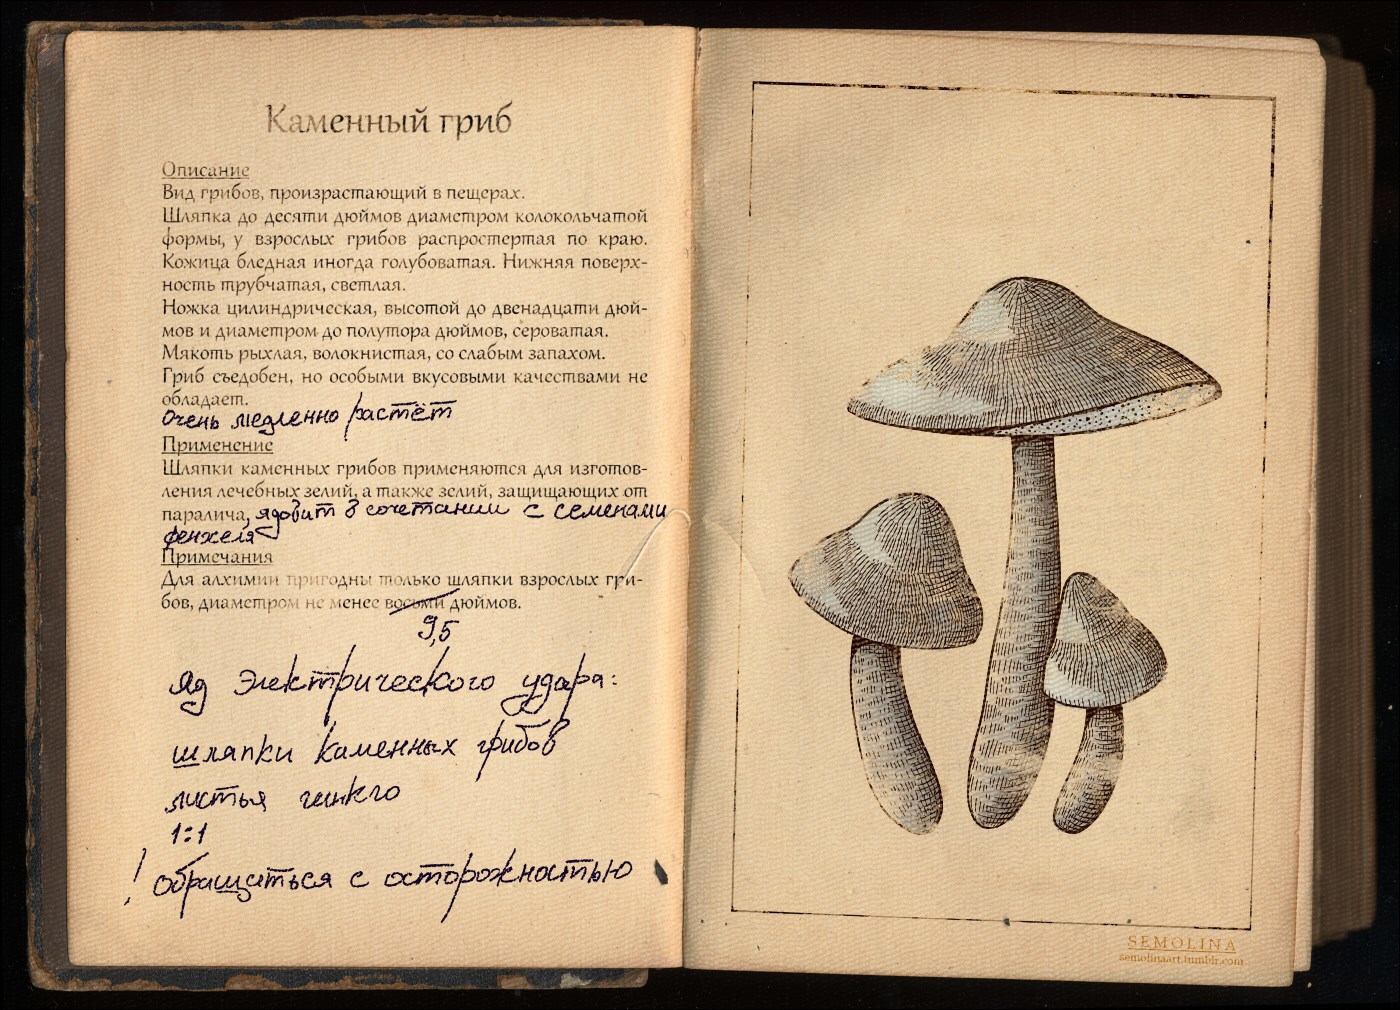 Каменный гриб
Описание
Вид грибов, произрастающий в пещерах.
Шляпка до десяти дюймов диаметром колокольчатой
формы, у взрослых грибов распростертая по краю.
Кожица бледная иногда голубоватая. Нижняя поверх-
ность трубчатая, светлая.
Ножка цилиндрическая, высотой до двенадцати дюй-
мов и диаметром до полутора дюймов, сероватая.
Мякоть рыхлая, волокнистая, со слабым запахом.
Гриб съедобен, но особыми вкусовыми качествами не
обладает.
Очень медленно растёт
Применение
Шляпки каменных грибов применяются для изготов-
ления лечебных зелий, а также зелий, защищающих от
паралича, ядовит в сочетании с семенами
фенхеля
Примечания
Для алхимии пригодны только шляпки взрослых гри-
бов, диаметром не менее восьми дюймов.
9,5
Яд Электрического удара:
шляпки каменных грибов
листья гинкго
1:1
! Обращаться с осторожностью
SEMOLINA
semolinaart.tumblr.com